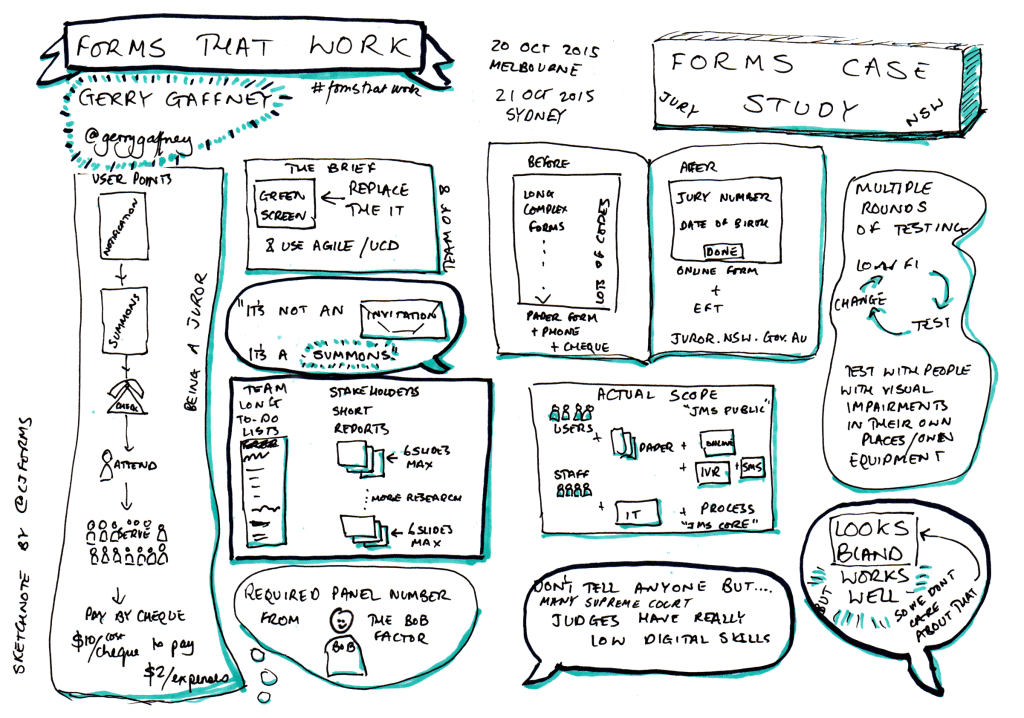 FORMS THAT WORK
#formsthatwork
GERRY GAFFNEY
@gerrygaffney
20 OCT 2015
MELBOURNE
21 OCT 2015
SYDNEY
FORMS CASE
STUDY
JURY
NSW
USER POINTS
NOTIFICATION
SUMMONS
CHECK
ATTEND
SERVE
PAY BY CHEQUE
$10/cost cheque to pay
$2/expenses
BEING A JUROR
THE BRIEF
GREEN
SCREEN
REPLACE
THE IT
& USE AGILE/UCD
TEAM OF 8
"IT'S NOT AN INVITATION
IT'S A SUMMONS"
TEAM
LONG
TO-DO
LISTS
STAKEHOLDERS
SHORT
REPORTS
6 SLIDES
MAX
MORE RESEARCH
6 SLIDES
MAX
REQUIRED PANEL NUMBER
FROM THE BOB
FACTOR
BOB
BEFORE
LONG
COMPLEX
FORMS
LOTS OF CODES
PAPER FORM
+ PHONE
+ CHEQUE
AFTER
JURY NUMBER
DATE OF BIRTH
DONE
ONLINE FORM
+
EFT
JUROR.NSW.GOV.AU
ACTUAL SCOPE
"JMS PUBLIC"
USERS
+ PAPER + ONLINE
+ IVR + SMS
STAFF
+ IT + PROCESS
"JMS CORE"
DON'T TELL ANYONE BUT....
MANY SUPREME COURT
JUDGES HAVE REALLY
LOW DIGITAL SKILLS
MULTIPLE
ROUNDS
OF TESTING
LOW FI
CHANGE
TEST
TEST WITH PEOPLE
WITH VISUAL
IMPAIRMENTS
IN THEIR OWN
PLACES/OWN
EQUIPMENT
LOOKS
BLAND
BUT
WORKS
WELL
SO WE DON'T
CARE
ABOUT THAT
SKETCHNOTE BY @CJFORMS